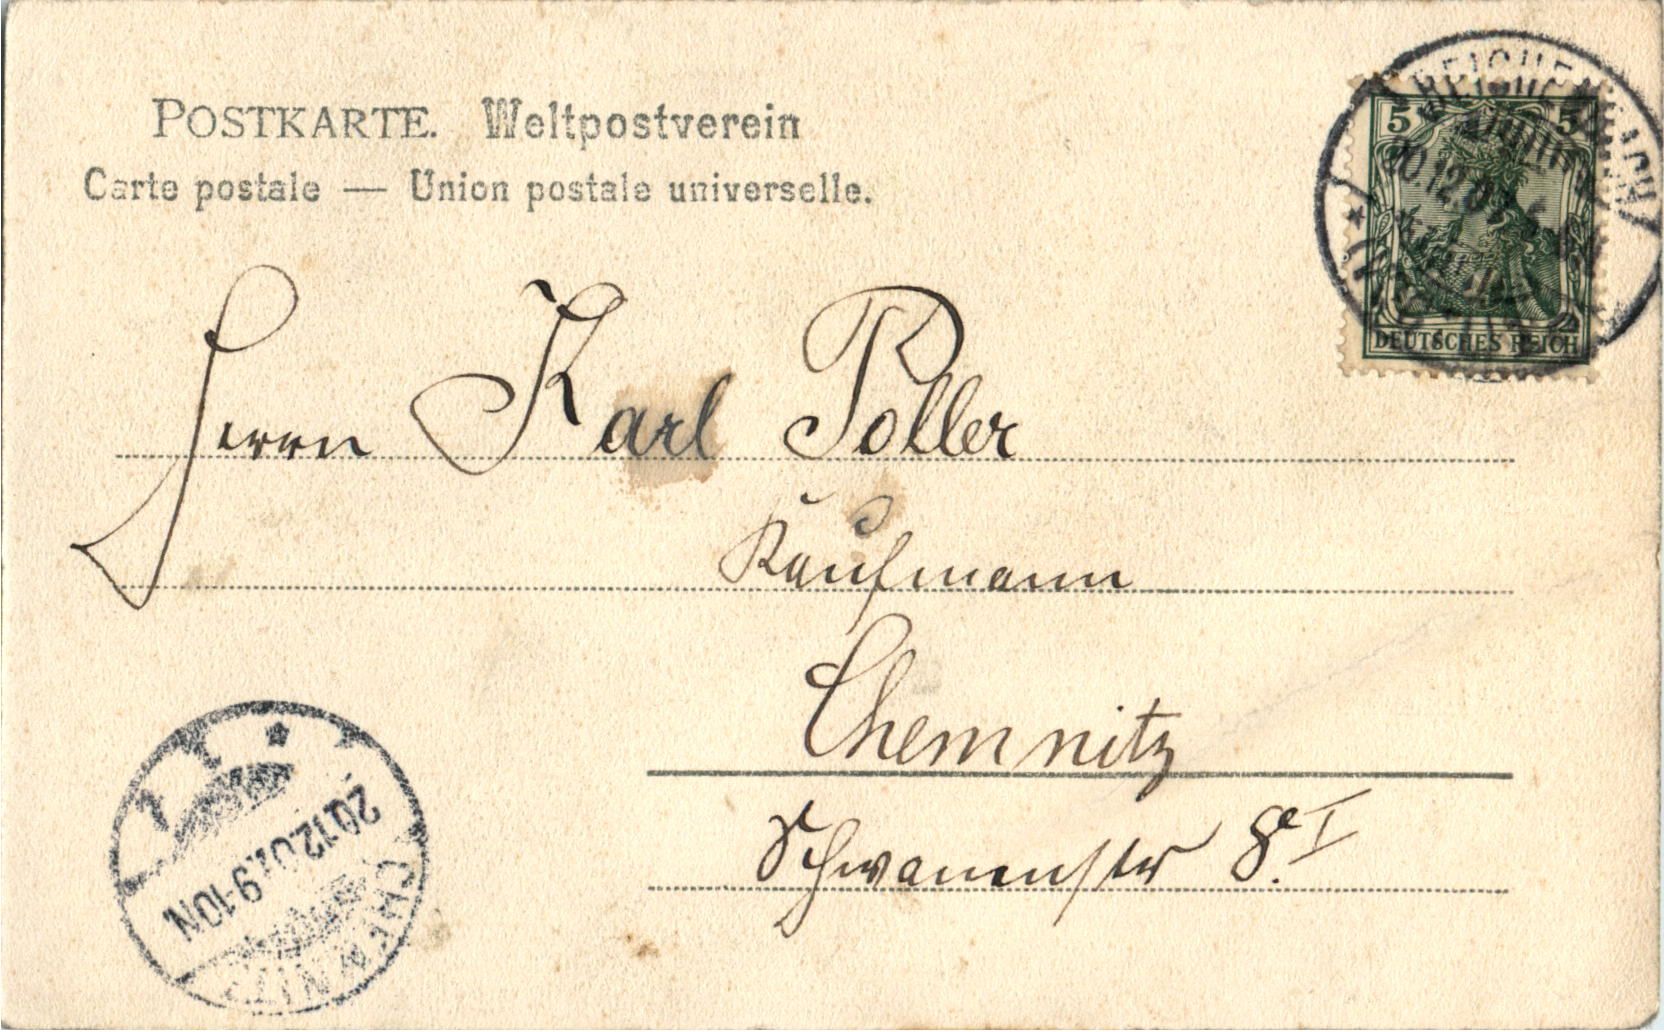 POSTKARTE. Weltpostverein
Carte postale — Union postale universelle.
5 5
DEUTSCHES REICH
20.12.01
Herrn Karl Poller
Kaufmann
Chemnitz
Schwanenstr 8.I
CHEMNITZ
20.12.01.9-10N.
1